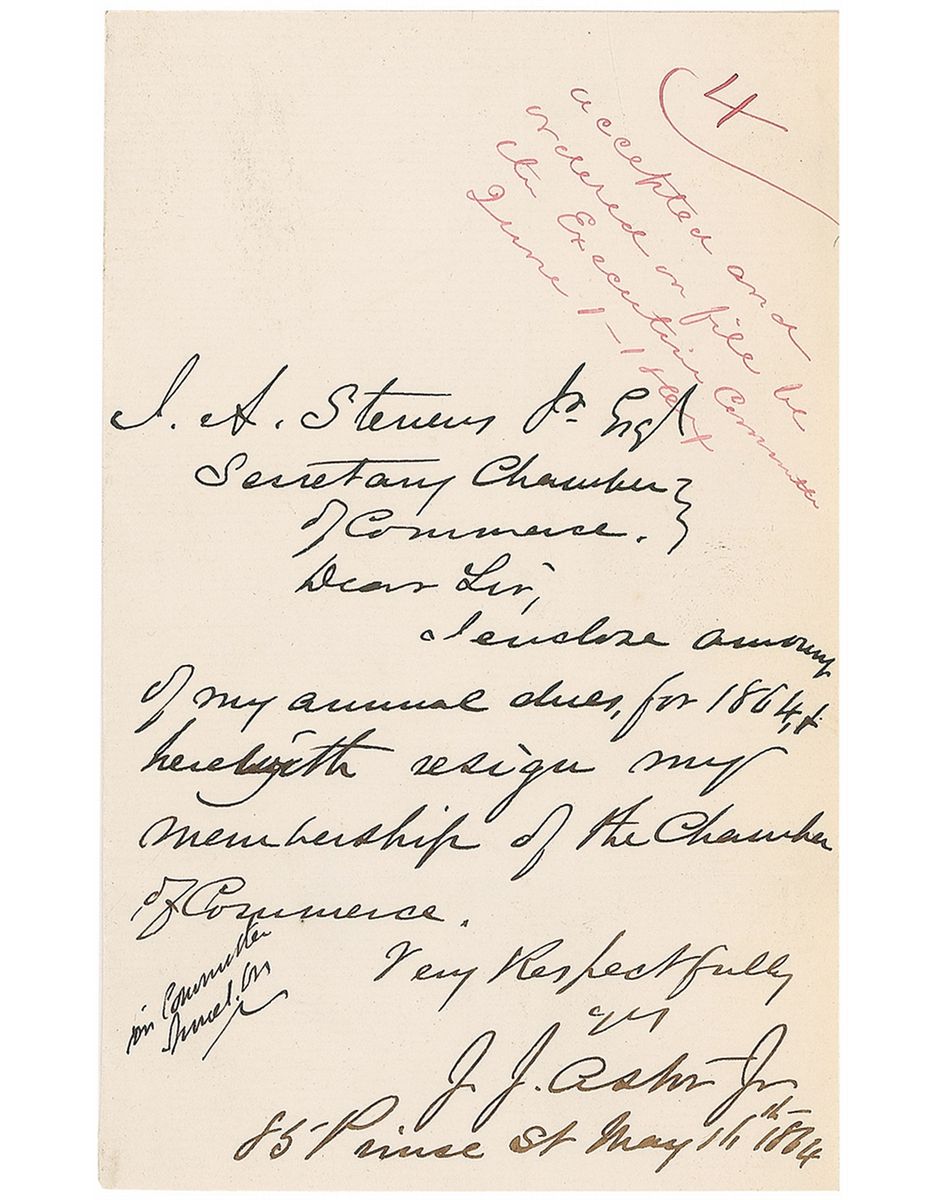 4
accepted and
ordered on file by
the Executive Committee
June 1 - 1864
J. A. Stevens Jr Esq
Secretary Chamber
of Commerce.
Dear Sir,
I enclose amount
of my annual dues, for 1864, &
herewith resign my
membership of the Chamber
of Commerce.
in Committee
Very Respectfully
yrs
J. J. Astor Jr
85 Prince St May 1864